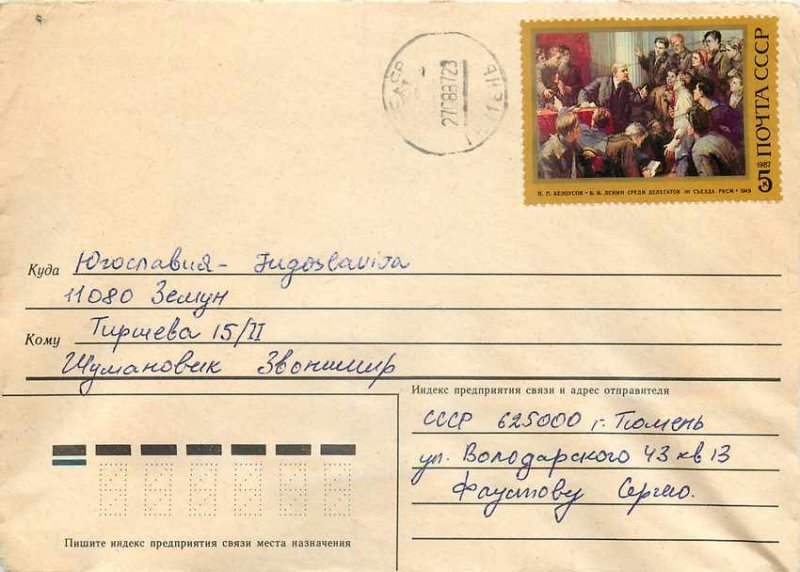 СССР
ТЮМЕНЬ
ПОЧТА СССР
1987
5к
П. П. БЕЛОУСОВ • В. И. ЛЕНИН СРЕДИ ДЕЛЕГАТОВ III СЪЕЗДА РКСМ • 1949
Куда Югославия - Jugoslavija
11080 Земун
Кому Тиршева 15/II
Шумановик Звонимир
Индекс предприятия связи и адрес отправителя
СССР 625000 г. Тюмень
ул. Володарского 43 кв 13
Фаустову Сергею.
Пишите индекс предприятия связи места назначения